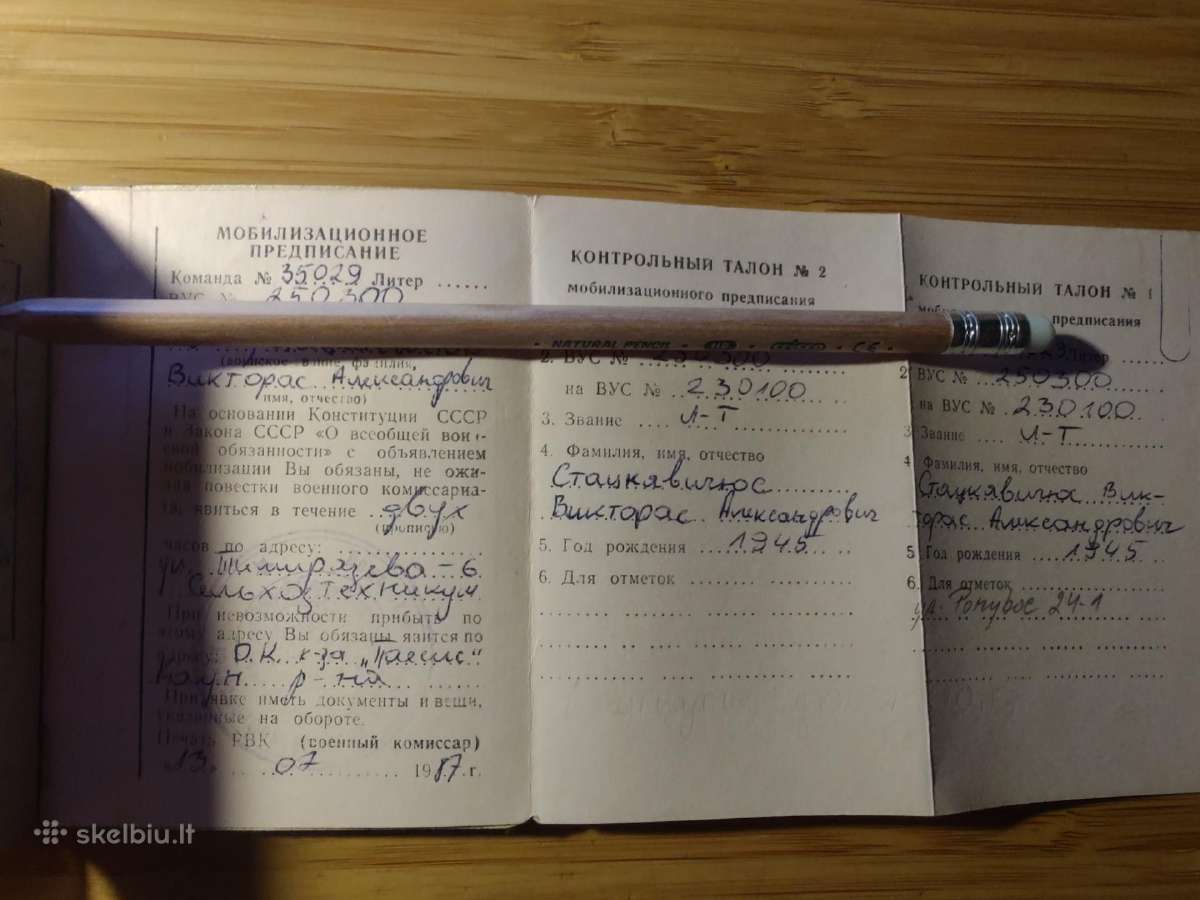 МОБИЛИЗАЦИОННОЕ
ПРЕДПИСАНИЕ
Команда № 35029 Литер ......
ВУС № 250300
(воинское звание фамилия,
Викторас Александрович
имя, отчество)
На основании Конституции СССР
и Закона СССР «О всеобщей воин-
ской обязанности» с объявлением
мобилизации Вы обязаны, не ожи-
дая повестки военного комиссариа-
та, явиться в течение двух
(прописью)
часов по адресу:
ул. Тимирязева-6
Сельхозтехникум
При невозможности прибыть по
этому адресу Вы обязаны явится по
адресу: Д.К. к-за
р-на
При явке иметь документы и вещи,
указанные на обороте.
Печать РВК (военный комиссар)
13. 07 1987 г.
КОНТРОЛЬНЫЙ ТАЛОН № 2
мобилизационного предписания
NATURAL PENCIL
2. ВУС № 250300
на ВУС № 230100
3. Звание Л-Т
4. Фамилия, имя, отчество
Стацкявичюс
Викторас Александрович
5. Год рождения 1945
6. Для отметок
КОНТРОЛЬНЫЙ ТАЛОН № 1
предписания
Литер
2 ВУС № 250300
на ВУС № 230100
3 Звание Л-Т
4 Фамилия, имя, отчество
Стацкявичюс Вик-
торас Александрович
5 Год рождения 1945
6. Для отметок
ул. 24-1
skelbiu.lt